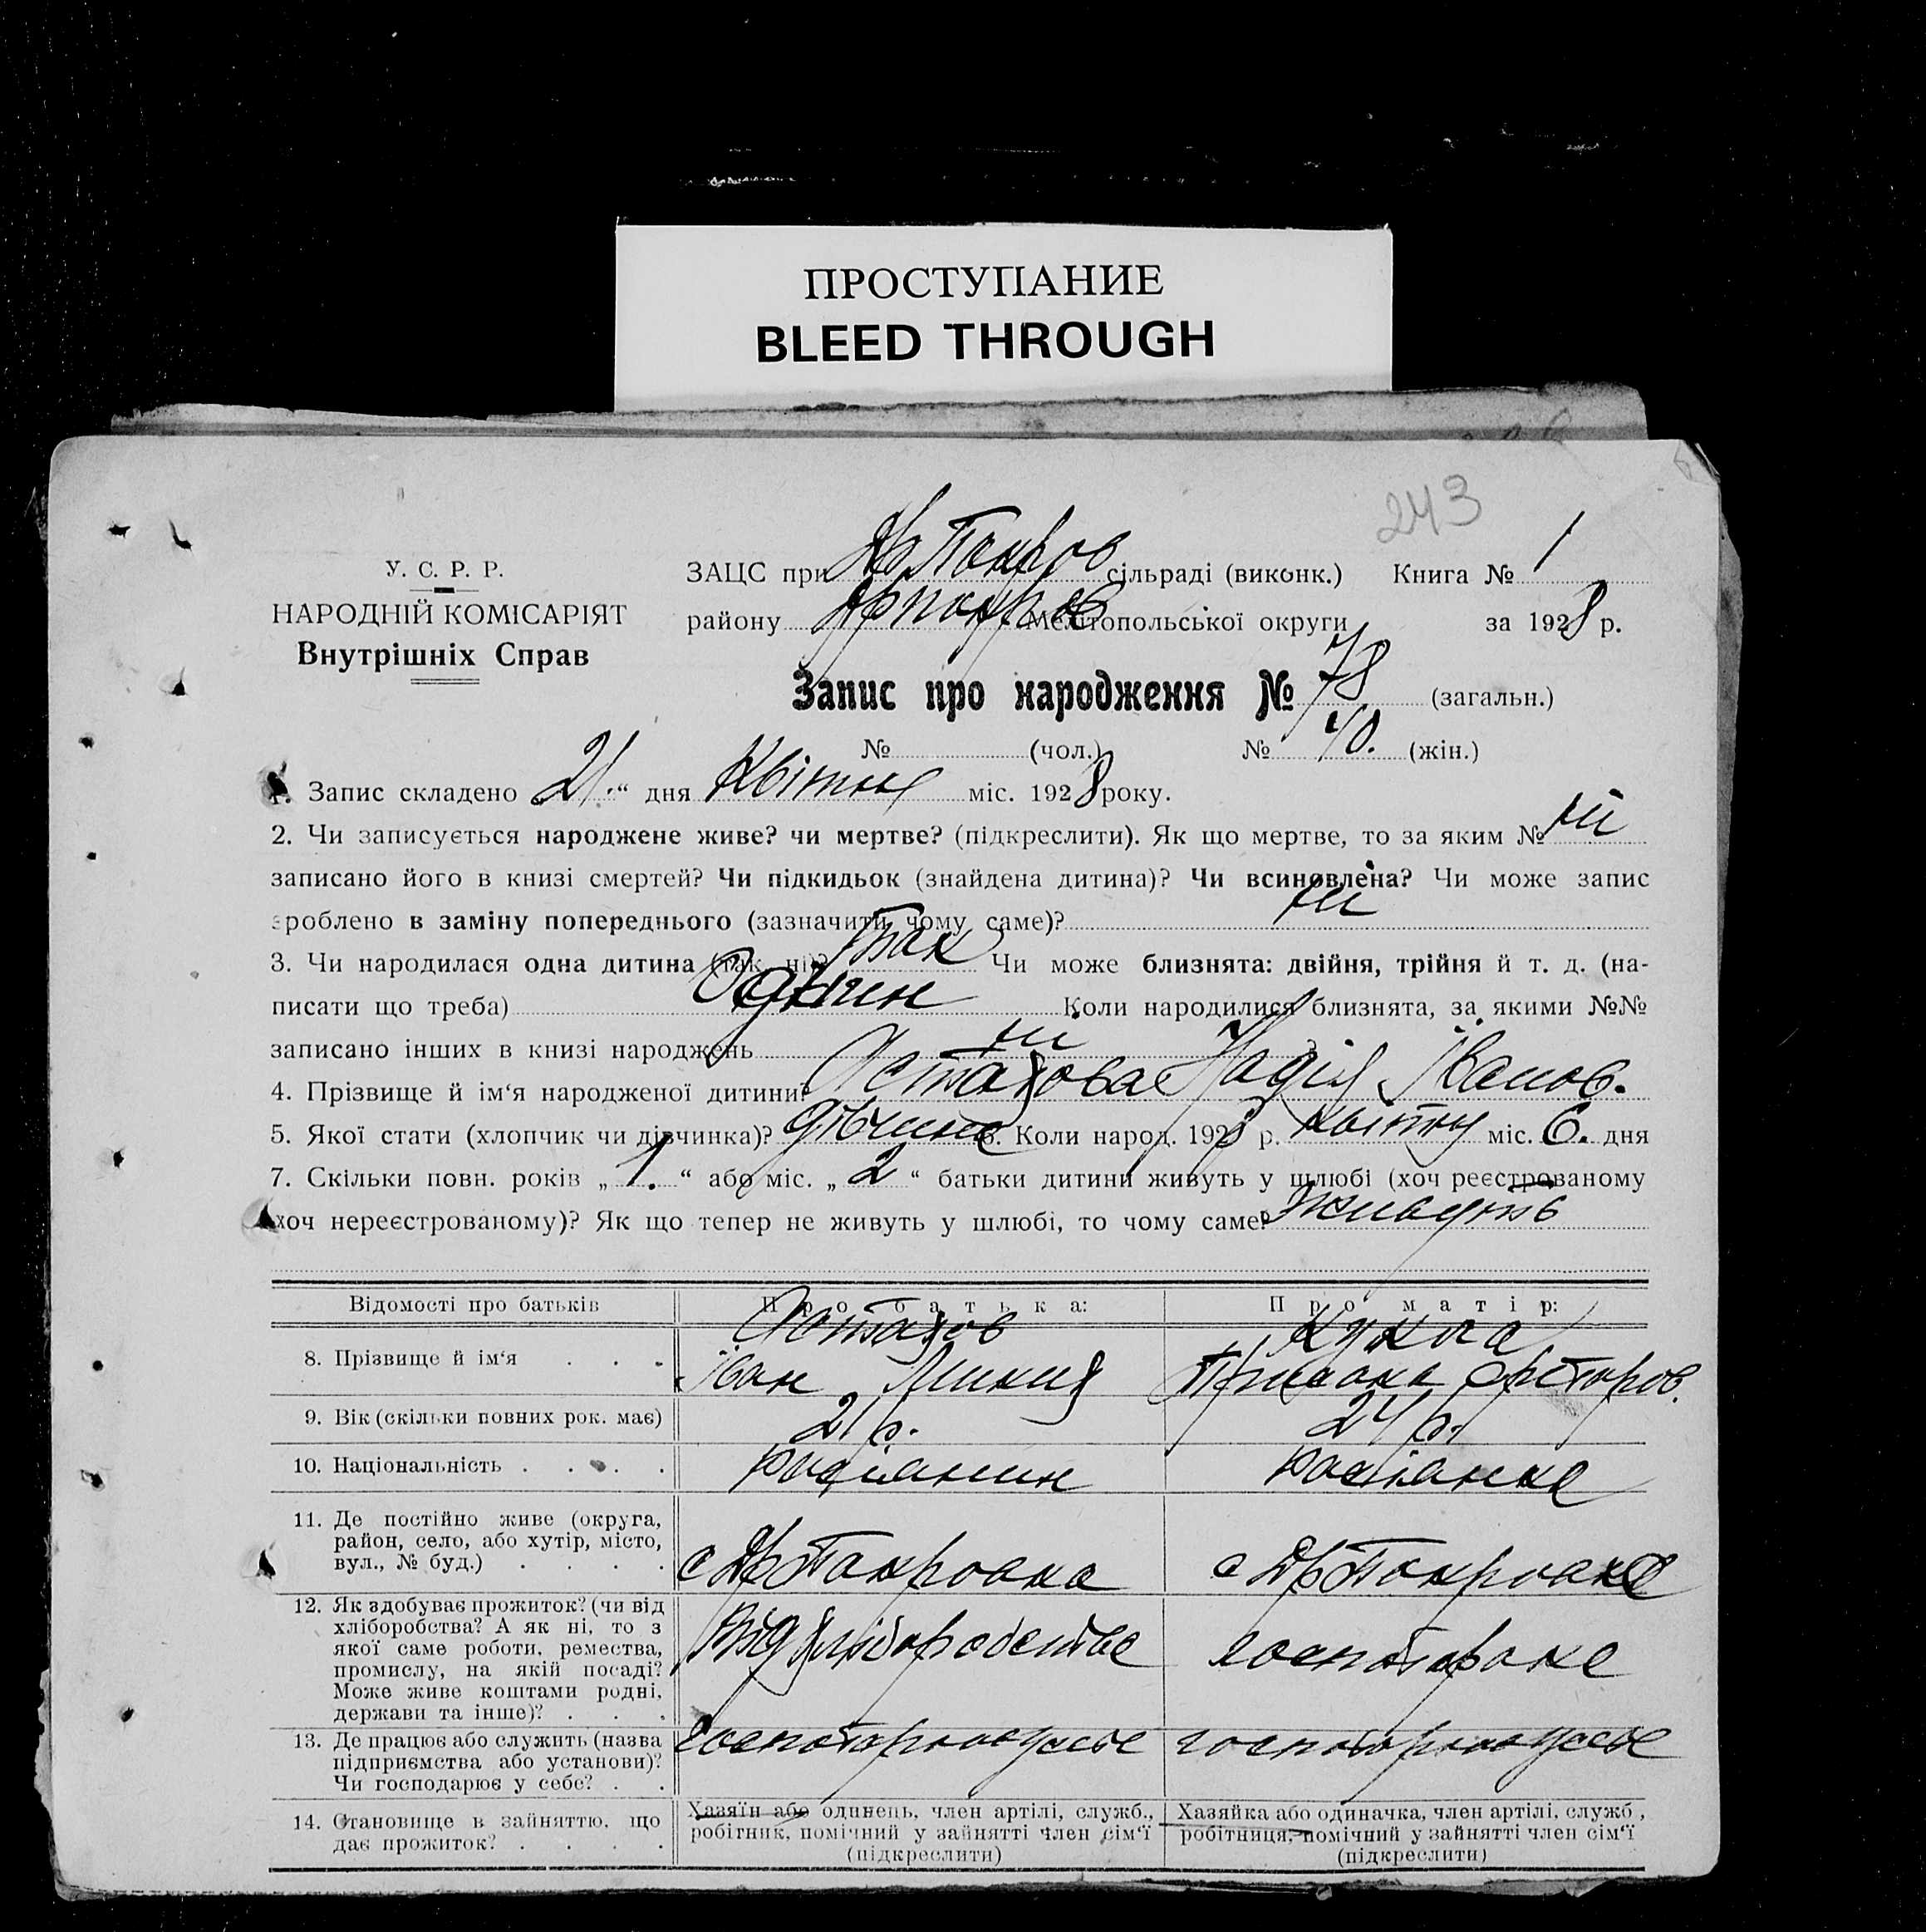 ПРОСТУПАНИЕ
BLEED THROUGH
243
У. С. Р. Р.
НАРОДНІЙ КОМІСАРІЯТ
Внутрішніх Справ
ЗАЦС при Др Покров сільраді (виконк.) Книга № 1
району Мелітопольської округи за 1928 р.
Запис про народження № 78 (загальн.)
№ (чол.) № 40. (жін.)
1. Запис складено „21.“ дня Квітня міс. 1928 року.
2. Чи записується народжене живе? чи мертве? (підкреслити). Як що мертве, то за яким № ні
записано його в книзі смертей? Чи підкидьок (знайдена дитина)? Чи всиновлена? Чи може запис
зроблено в заміну попереднього (зазначити чому саме)? ні
3. Чи народилася одна дитина (так, ні)? Так Чи може близнята: двійня, трійня й т. д. (на-
писати що треба) Коли народилися близнята, за якими №№
записано інших в книзі народжень ні
4. Прізвище й ім‘я народженої дитини? Астахова Надія Іванов.
5. Якої стати (хлопчик чи дівчинка)? дівчина 6. Коли народ. 1928 р. квітня міс. 6. дня
7. Скільки повн. років „1.“ або міс. „2“ батьки дитини живуть у шлюбі (хоч реєстрованому
хоч нереєстрованому)? Як що тепер не живуть у шлюбі, то чому саме?
Відомості про батьків Про батька: Про матір:
8. Прізвище й ім‘я . . . Астахов Іван
9. Вік (скільки повних рок. має) 21 р. 24 р.
10. Національність . . . . росіянин росіянка
11. Де постійно живе (округа,
район, село, або хутір, місто,
вул., № буд.) . . . . с Др Покровка с Др Покровка
12. Як здобуває прожиток? (чи від
хліборобства? А як ні, то з
якої саме роботи, ремества,
промислу, на якій посаді?
Може живе коштами родні,
держави та інше)? . . . Від
13. Де працює або служить (назва
підприємства або установи)?
Чи господарює у себе? . .
14. Становище в зайняттю, що
дає прожиток? . . . .
Хазяїн або одинець, член артілі, служб.,
робітник, помічний у зайнятті член сім‘ї
(підкреслити)
Хазяйка або одиначка, член артілі, служб.,
робітниця, помічний у зайнятті член сім‘ї
(підкреслити)